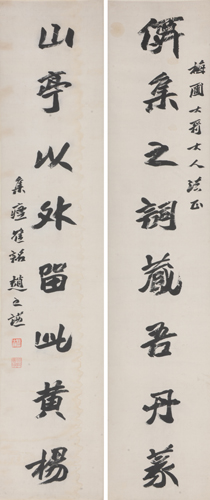 梅圃大哥大人法正
僊集之詞藏吾丹篆
山亭以外留此黃楊
集瘞鶴銘 趙之謙